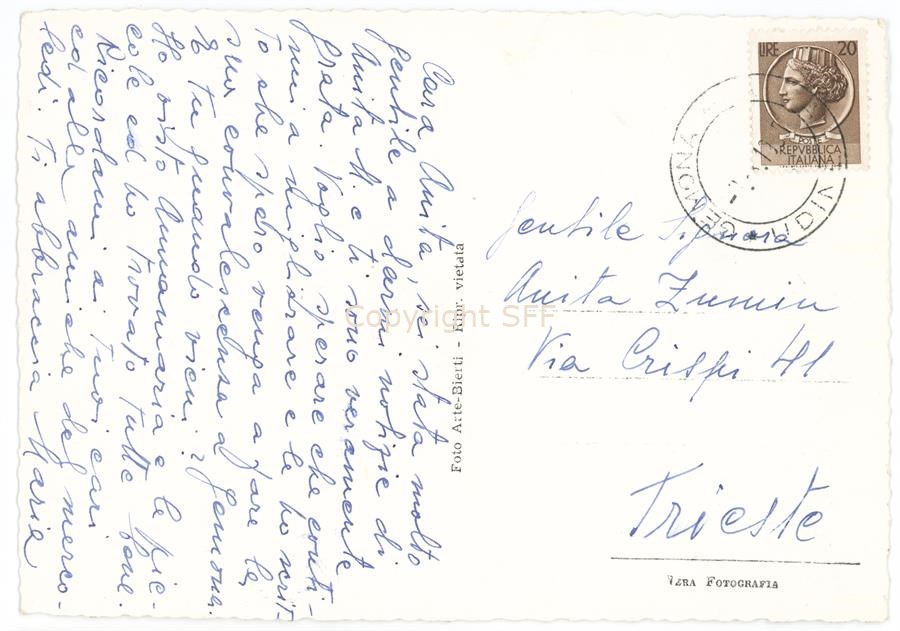 Cara Anita, sei stata molto
gentile a darmi notizie di
Anita M. e ti sono veramente
grata. Voglio sperare che conti-
nui a migliorare e le ho scrit-
to che spero venga a fare la
sua convalescenza a Gemona.
E tu quando vieni?
Ho visto Annamaria e le pic-
cole ed ho trovato tutte bene.
Ricordami ai tuoi cari
ed alle amiche del merco-
ledì. Ti abbraccia Maria
Foto Arte-Bierti - Ripr. vietata
LIRE 20
POSTE
REPVBBLICA
ITALIANA
GEMONA
UDINE
Gentile Signora
Anita Zumin
Via Crispi 41
Trieste
VERA FOTOGRAFIA
Copyright SFF